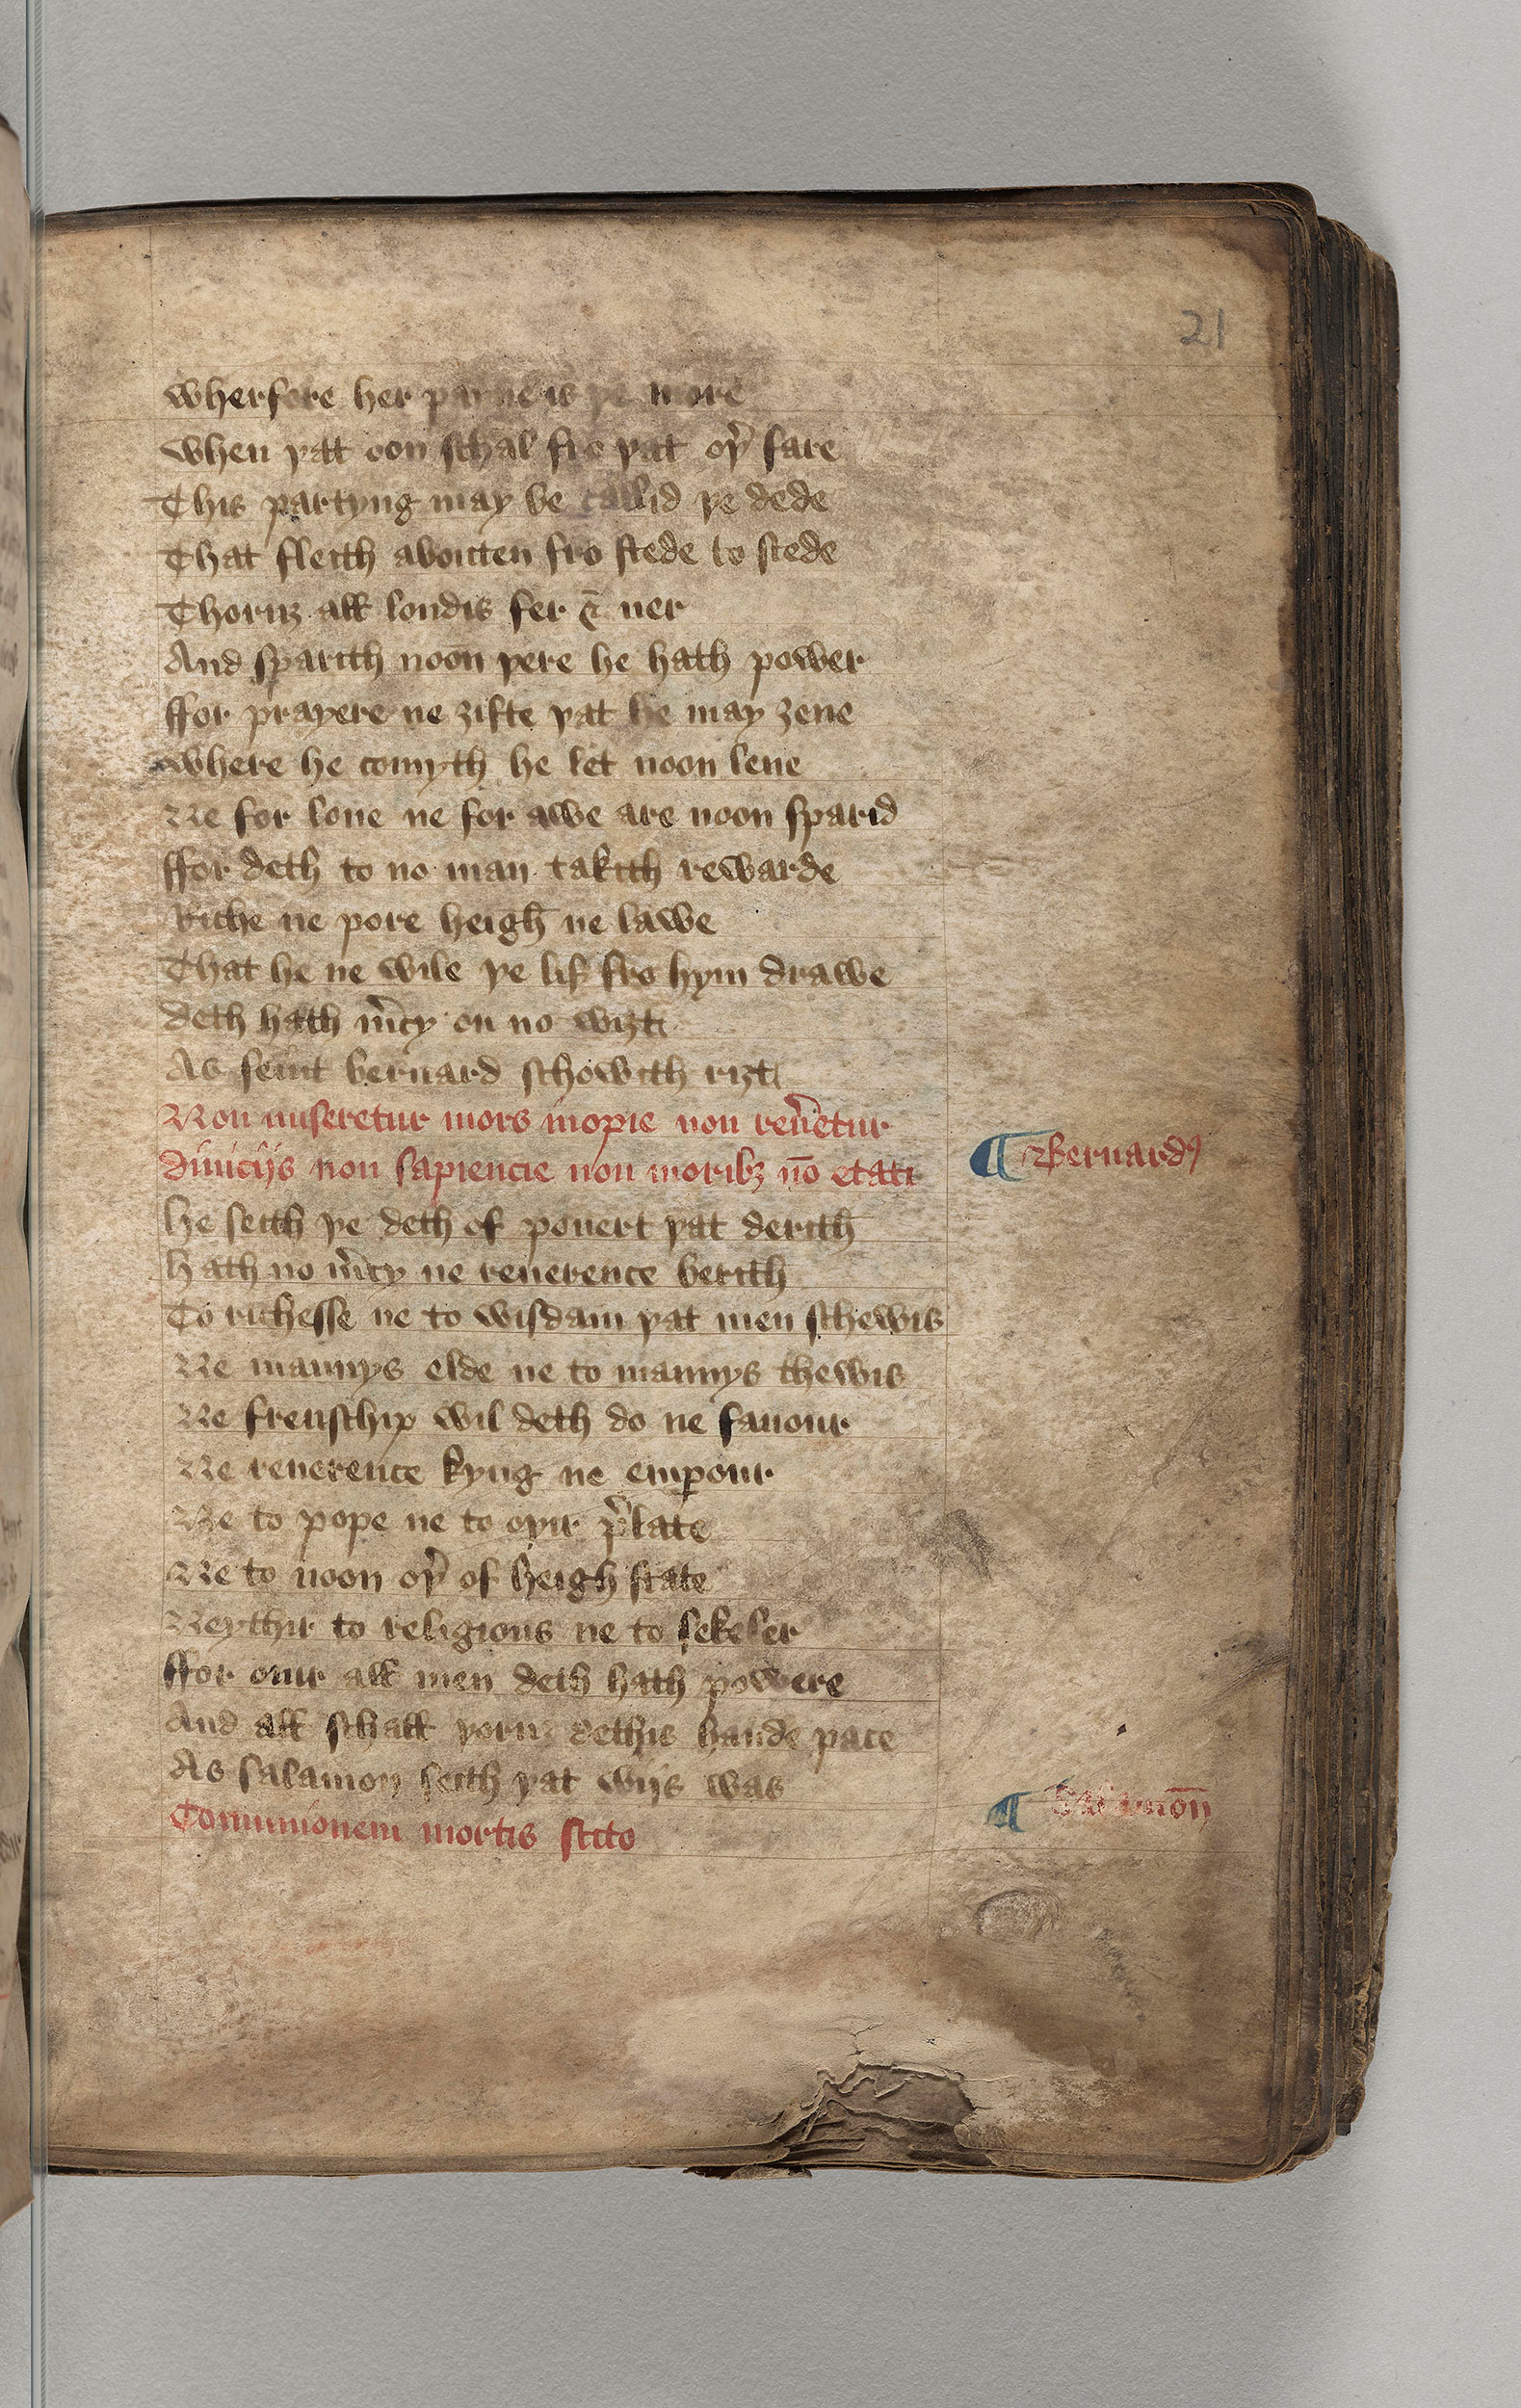 21
wherfore her payne is þe more
when þat oon schal fro þat oþ̉ fare
This partyng may be callid þe dede
That fleith abouten fro stede to stede
Thoruȝ all londis fer & ner
And sparith noon þere he hath power
ffor prayere ne ȝifte þat he may ȝeue
where he comyth he let noon leue
Ne for loue ne for awe are noon sparid
ffor deth to no man takith rewarde
Riche ne pore heigh ne lawe
That he ne wile þe lif fro hym drawe
deth hath m̉cy on no wiȝt
As seint bernard schowith riȝt
Non miseretur mors inopie non reủetur
diuicijs non sapiencie non moribȝ nō etati
¶ Bernardꝰ
he seith þe deth of pouert þat derith
hath no m̉cy ne reuerence berith
To richesse ne to wisdam þat men schewis
Ne mannys elde ne to mannys thewis
Ne frenschip wil deth do ne fauour
Ne reuerence kyng ne emꝑour
Ne to pope ne to oþir p̉late
Ne to noon oþ̉ of heigh state
Neythir to religious ne to sekeler
ffor ouir all men deth hath powere
And all schall þoruȝ dethis hande pace
As salamon seith þat wijs was
Comunionem mortis scito
¶ Salamōn